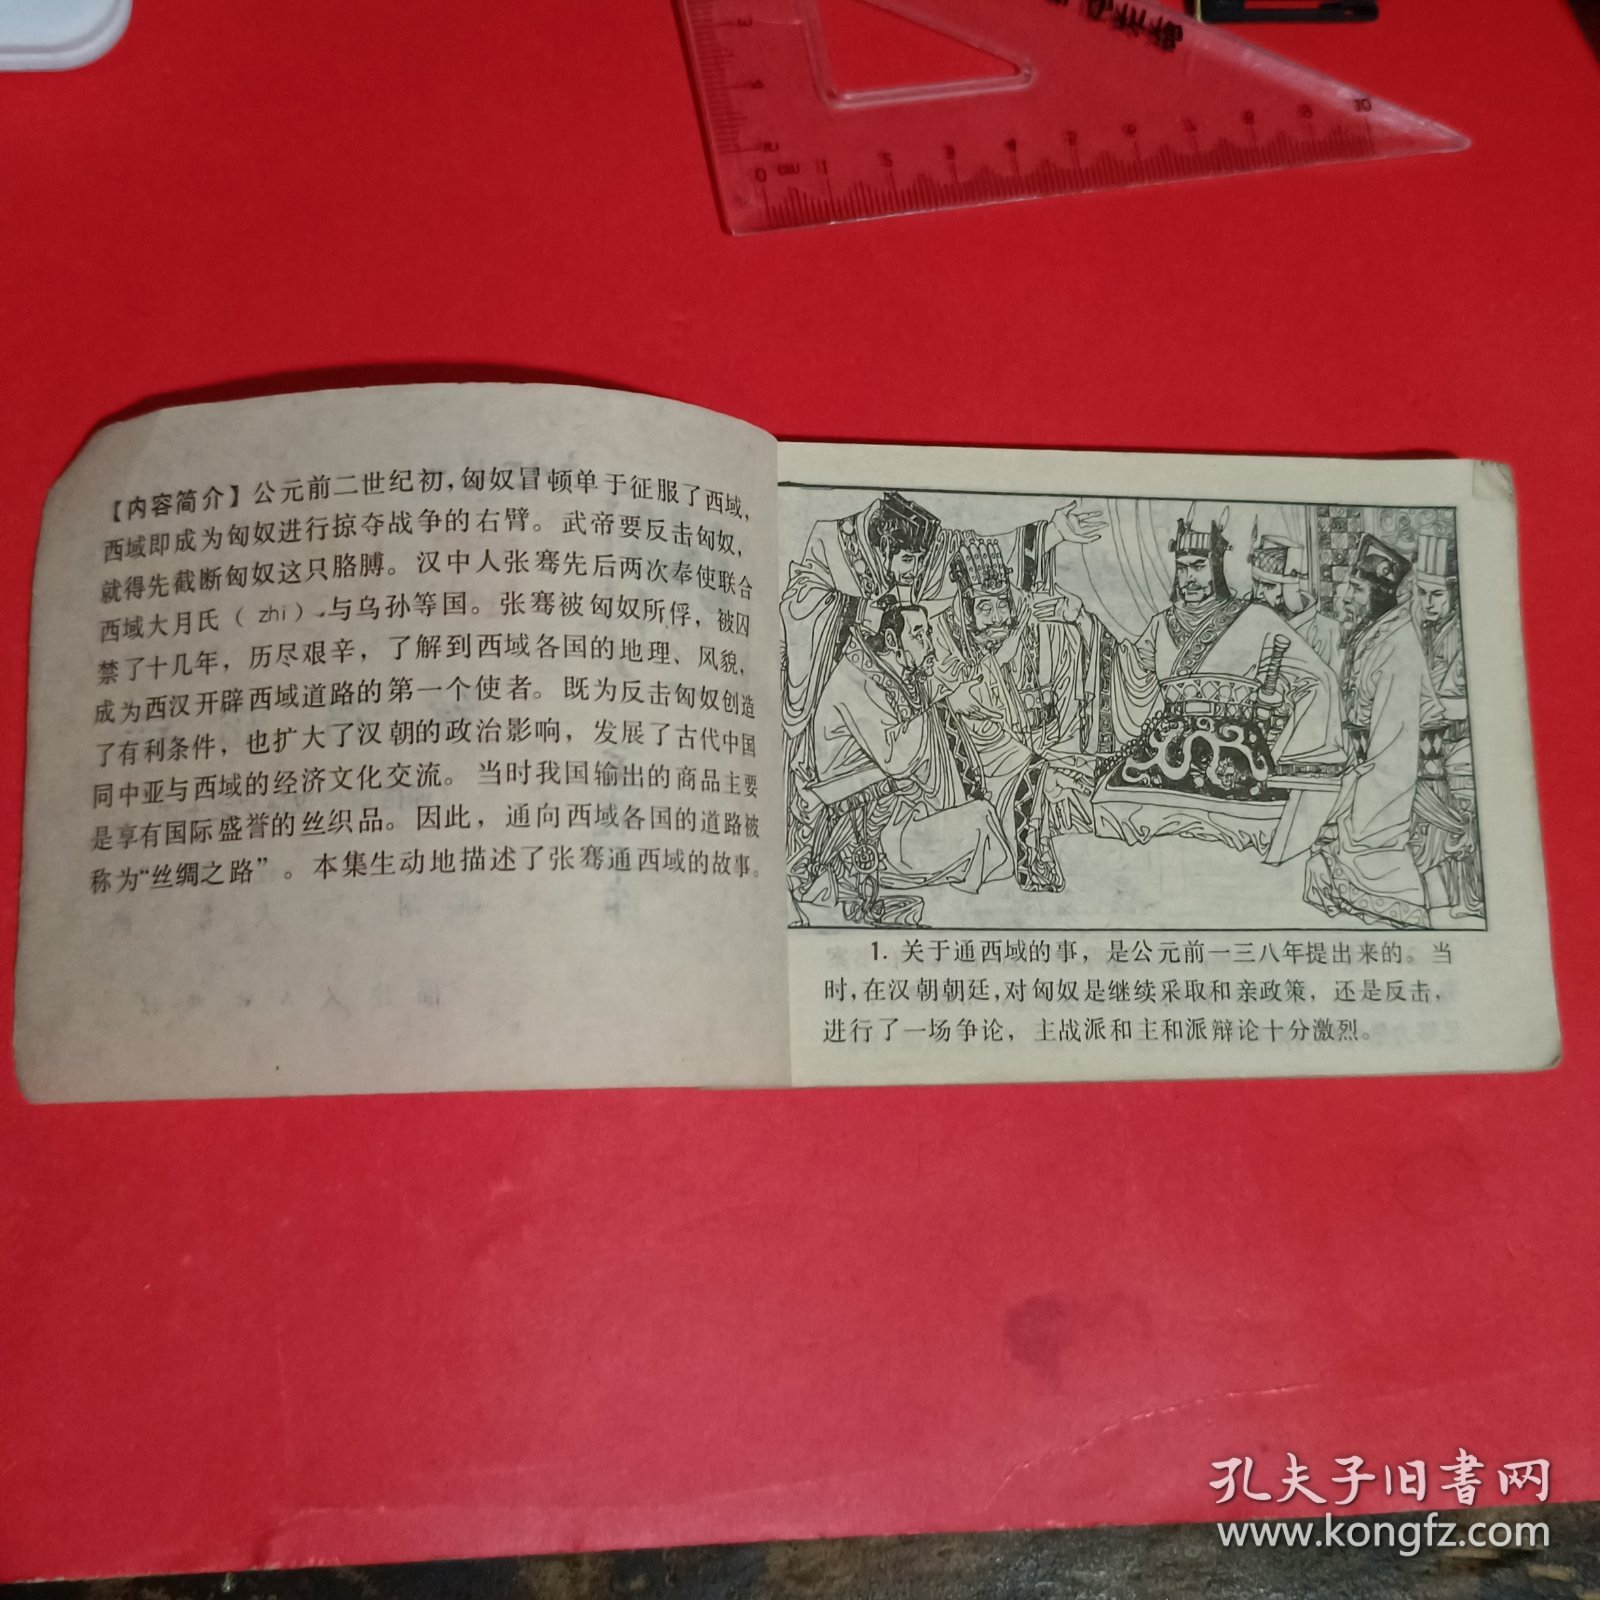 【内容简介】公元前二世纪初，匈奴冒顿单于征服了西域，
西域即成为匈奴进行掠夺战争的右臂。武帝要反击匈奴，
就得先截断匈奴这只胳膊。汉中人张骞先后两次奉使联合
西域大月氏（zhi）与乌孙等国。张骞被匈奴所俘，被囚
禁了十几年，历尽艰辛，了解到西域各国的地理、风貌，
成为西汉开辟西域道路的第一个使者。既为反击匈奴创造
了有利条件，也扩大了汉朝的政治影响，发展了古代中国
同中亚与西域的经济文化交流。当时我国输出的商品主要
是享有国际盛誉的丝织品。因此，通向西域各国的道路被
称为“丝绸之路”。本集生动地描述了张骞通西域的故事。
1. 关于通西域的事，是公元前一三八年提出来的。当
时，在汉朝朝廷，对匈奴是继续采取和亲政策，还是反击，
进行了一场争论，主战派和主和派辩论十分激烈。
0 cm 1 2 3 4 5 6 7 8 9 10
孔夫子旧书网
www.kongfz.com